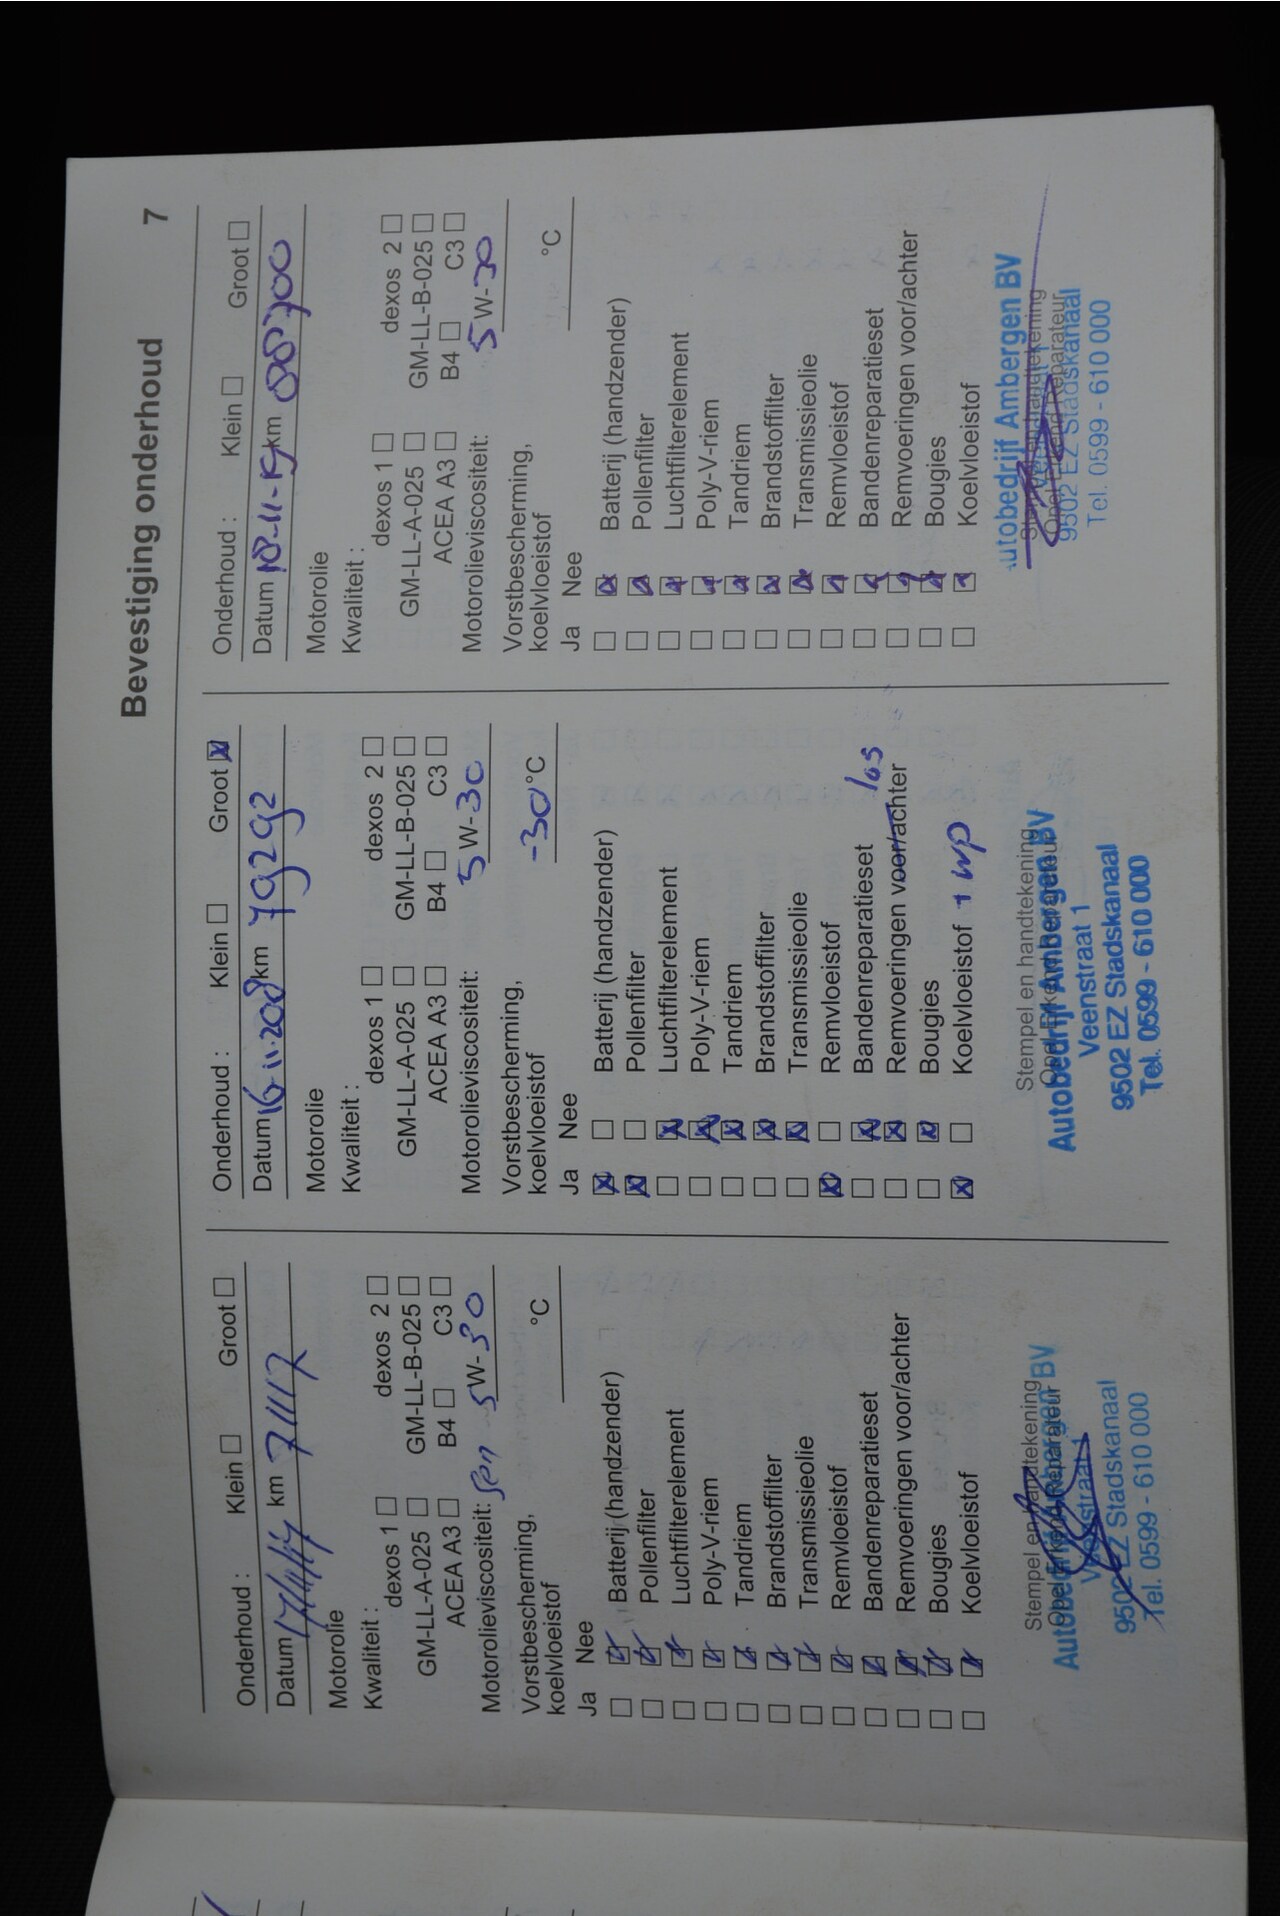 Bevestiging onderhoud 7
Onderhoud : Klein ☐ Groot ☐
Datum km 71117
Motorolie
Kwaliteit :
dexos 1 ☐ dexos 2 ☐
GM-LL-A-025 ☐ GM-LL-B-025 ☐
ACEA A3 ☐ B4 ☐ C3 ☐
Motorolieviscositeit: 5W-30
Vorstbescherming,
koelvloeistof °C
Ja Nee
☐ ☒ Batterij (handzender)
☐ ☒ Pollenfilter
☐ ☒ Luchtfilterelement
☐ ☒ Poly-V-riem
☐ ☒ Tandriem
☐ ☒ Brandstoffilter
☐ ☒ Transmissieolie
☐ ☒ Remvloeistof
☐ ☒ Bandenreparatieset
☐ ☒ Remvoeringen voor/achter
☐ ☒ Bougies
☐ ☒ Koelvloeistof
Stempel en handtekening
Opel Erkend Reparateur
Autobedrijf Ambergen BV
Veenstraat 1
9502 EZ Stadskanaal
Tel. 0599 - 610 000
Onderhoud : Klein ☐ Groot ☒
Datum 16-11-2018 km 79292
Motorolie
Kwaliteit :
dexos 1 ☐ dexos 2 ☐
GM-LL-A-025 ☐ GM-LL-B-025 ☐
ACEA A3 ☐ B4 ☐ C3 ☐
Motorolieviscositeit: 5W-30
Vorstbescherming,
koelvloeistof -30°C
Ja Nee
☒ ☐ Batterij (handzender)
☒ ☐ Pollenfilter
☐ ☒ Luchtfilterelement
☐ ☒ Poly-V-riem
☐ ☒ Tandriem
☐ ☒ Brandstoffilter
☐ ☒ Transmissieolie
☒ ☐ Remvloeistof
☐ ☒ Bandenreparatieset
☐ ☒ Remvoeringen voor/achter
☐ ☒ Bougies
☒ ☐ Koelvloeistof + wp
Stempel en handtekening
Opel Erkend Reparateur
Autobedrijf Ambergen BV
Veenstraat 1
9502 EZ Stadskanaal
Tel. 0599 - 610 000
Onderhoud : Klein ☐ Groot ☐
Datum 18-11-19 km 88700
Motorolie
Kwaliteit :
dexos 1 ☐ dexos 2 ☐
GM-LL-A-025 ☐ GM-LL-B-025 ☐
ACEA A3 ☐ B4 ☐ C3 ☐
Motorolieviscositeit: 5W-30
Vorstbescherming,
koelvloeistof °C
Ja Nee
☐ ☒ Batterij (handzender)
☐ ☒ Pollenfilter
☐ ☒ Luchtfilterelement
☐ ☒ Poly-V-riem
☐ ☒ Tandriem
☐ ☒ Brandstoffilter
☐ ☒ Transmissieolie
☐ ☒ Remvloeistof
☐ ☒ Bandenreparatieset
☐ ☒ Remvoeringen voor/achter
☐ ☒ Bougies
☐ ☒ Koelvloeistof
Opel Erkend Reparateur
utobedrijf Ambergen BV
9502 EZ Stadskanaal
Tel. 0599 - 610 000